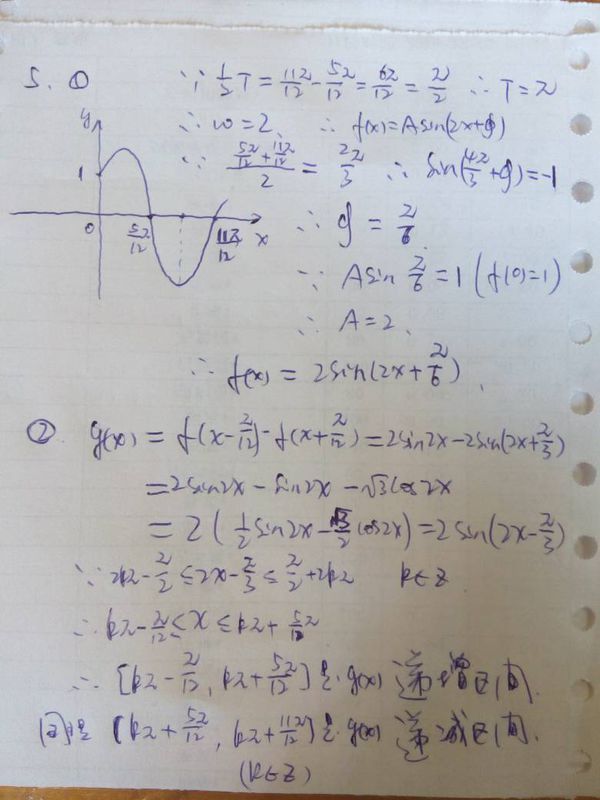 5. ① ∵ 1/2 T = 11π/12 - 5π/12 = 6π/12 = π/2 ∴ T = π
∴ ω = 2 ∴ f(x) = A sin(2x+φ)
∵ (5π/12 + 11π/12)/2 = 2π/3 ∴ sin(4π/3 + φ) = -1
∴ φ = π/6
∵ A sin π/6 = 1 (f(0)=1)
∴ A = 2
∴ f(x) = 2sin(2x + π/6).
y
1
0 5π/12 11π/12 x
② g(x) = f(x - π/12) - f(x + π/12) = 2sin2x - 2sin(2x + π/3)
= 2sin2x - sin2x - √3cos2x
= 2(1/2 sin2x - √3/2 cos2x) = 2sin(2x - π/3)
∵ 2kπ - π/2 ≤ 2x - π/3 ≤ π/2 + 2kπ k∈Z
∴ kπ - π/12 ≤ x ≤ kπ + 5π/12
∴ [kπ - π/12, kπ + 5π/12] 是 g(x) 递增区间.
同理 [kπ + 5π/12, kπ + 11π/12] 是 g(x) 递减区间.
(k∈Z)